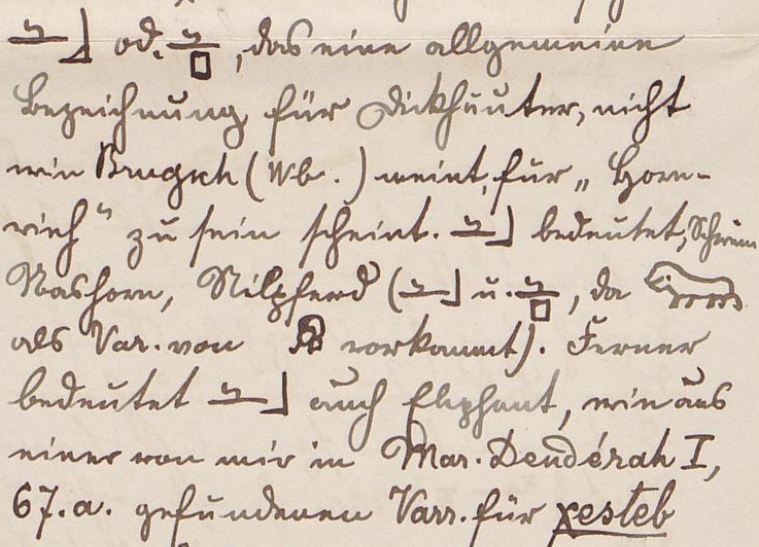 𓂝𓃀 od. 𓂝𓊪, das eine allgemeine
Bezeichnung für Dickhäuter, nicht
wie Brugsch (Wb.) meint, für „Horn-
vieh“ zu sein scheint. 𓂝𓃀 bedeutet, Schwein
Nashorn, Nilpferd (𓂝𓃀 u. 𓂝𓊪, da
als Var. von vorkommt). Ferner
bedeutet 𓂝𓃀 auch Elephant, wie aus
einer von mir in Mar. Dendérah I,
67.a. gefundenen Varr. für χesteb